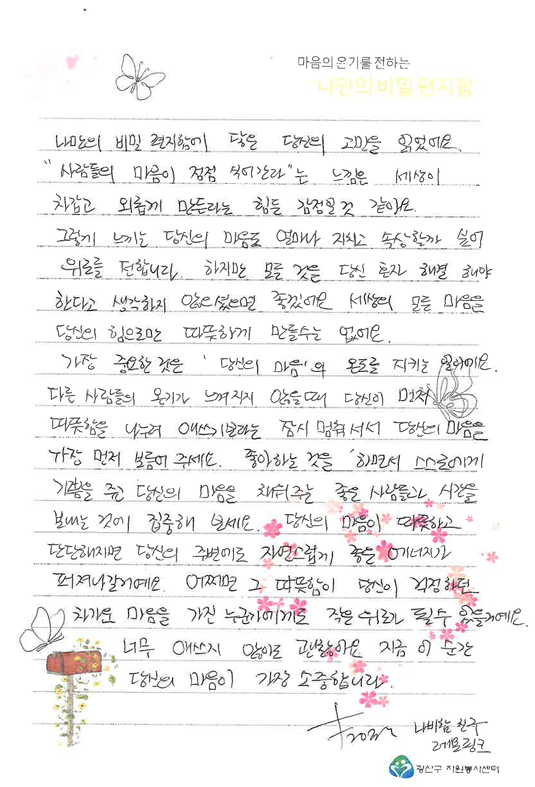 마음의 온기를 전하는
나만의 비밀편지함
나만의 비밀 편지함에 담은 당신의 고민을 읽었어요.
"사람들의 마음이 점점 식어간다"는 느낌은 세상이
차갑고 외롭게 만든다는 힘든 감정일것 같아요.
그렇게 느끼는 당신의 마음도 얼마나 지치고 속상할까 싶어
위로를 전합니다. 하지만 모든 것을 당신 혼자 해결 해야
한다고 생각하지 않으셨으면 좋겠어요 세상의 모든 마음을
당신의 힘으로만 따뜻하게 만들수는 없어요.
가장 중요한 것은 '당신의 마음'의 온도를 지키는 일이에요.
다른 사람들의 온기가 느껴지지 않을때 당신이 먼저
따뜻함을 나누려 애쓰기보다는 잠시 멈춰서서 당신의 마음을
가장 먼저 보듬어 주세요. 좋아하는 것을 하면서 스스로에게
기쁨을 주고 당신의 마음을 채워주는 좋은 사람들과 시간을
보내는 것에 집중해 보세요. 당신의 마음이 따뜻하고
단단해지면 당신의 주변에도 자연스럽게 좋은 에너지가
퍼져나갈거예요. 어쩌면 그 따뜻함이 당신이 걱정하던
차가운 마음을 가진 누군가에게도 작은 위로가 될수 있을거예요.
너무 애쓰지 않아도 괜찮아요 지금 이 순간
당신의 마음이 가장 소중합니다.
나비함 친구
레모링크
광산구 자원봉사센터